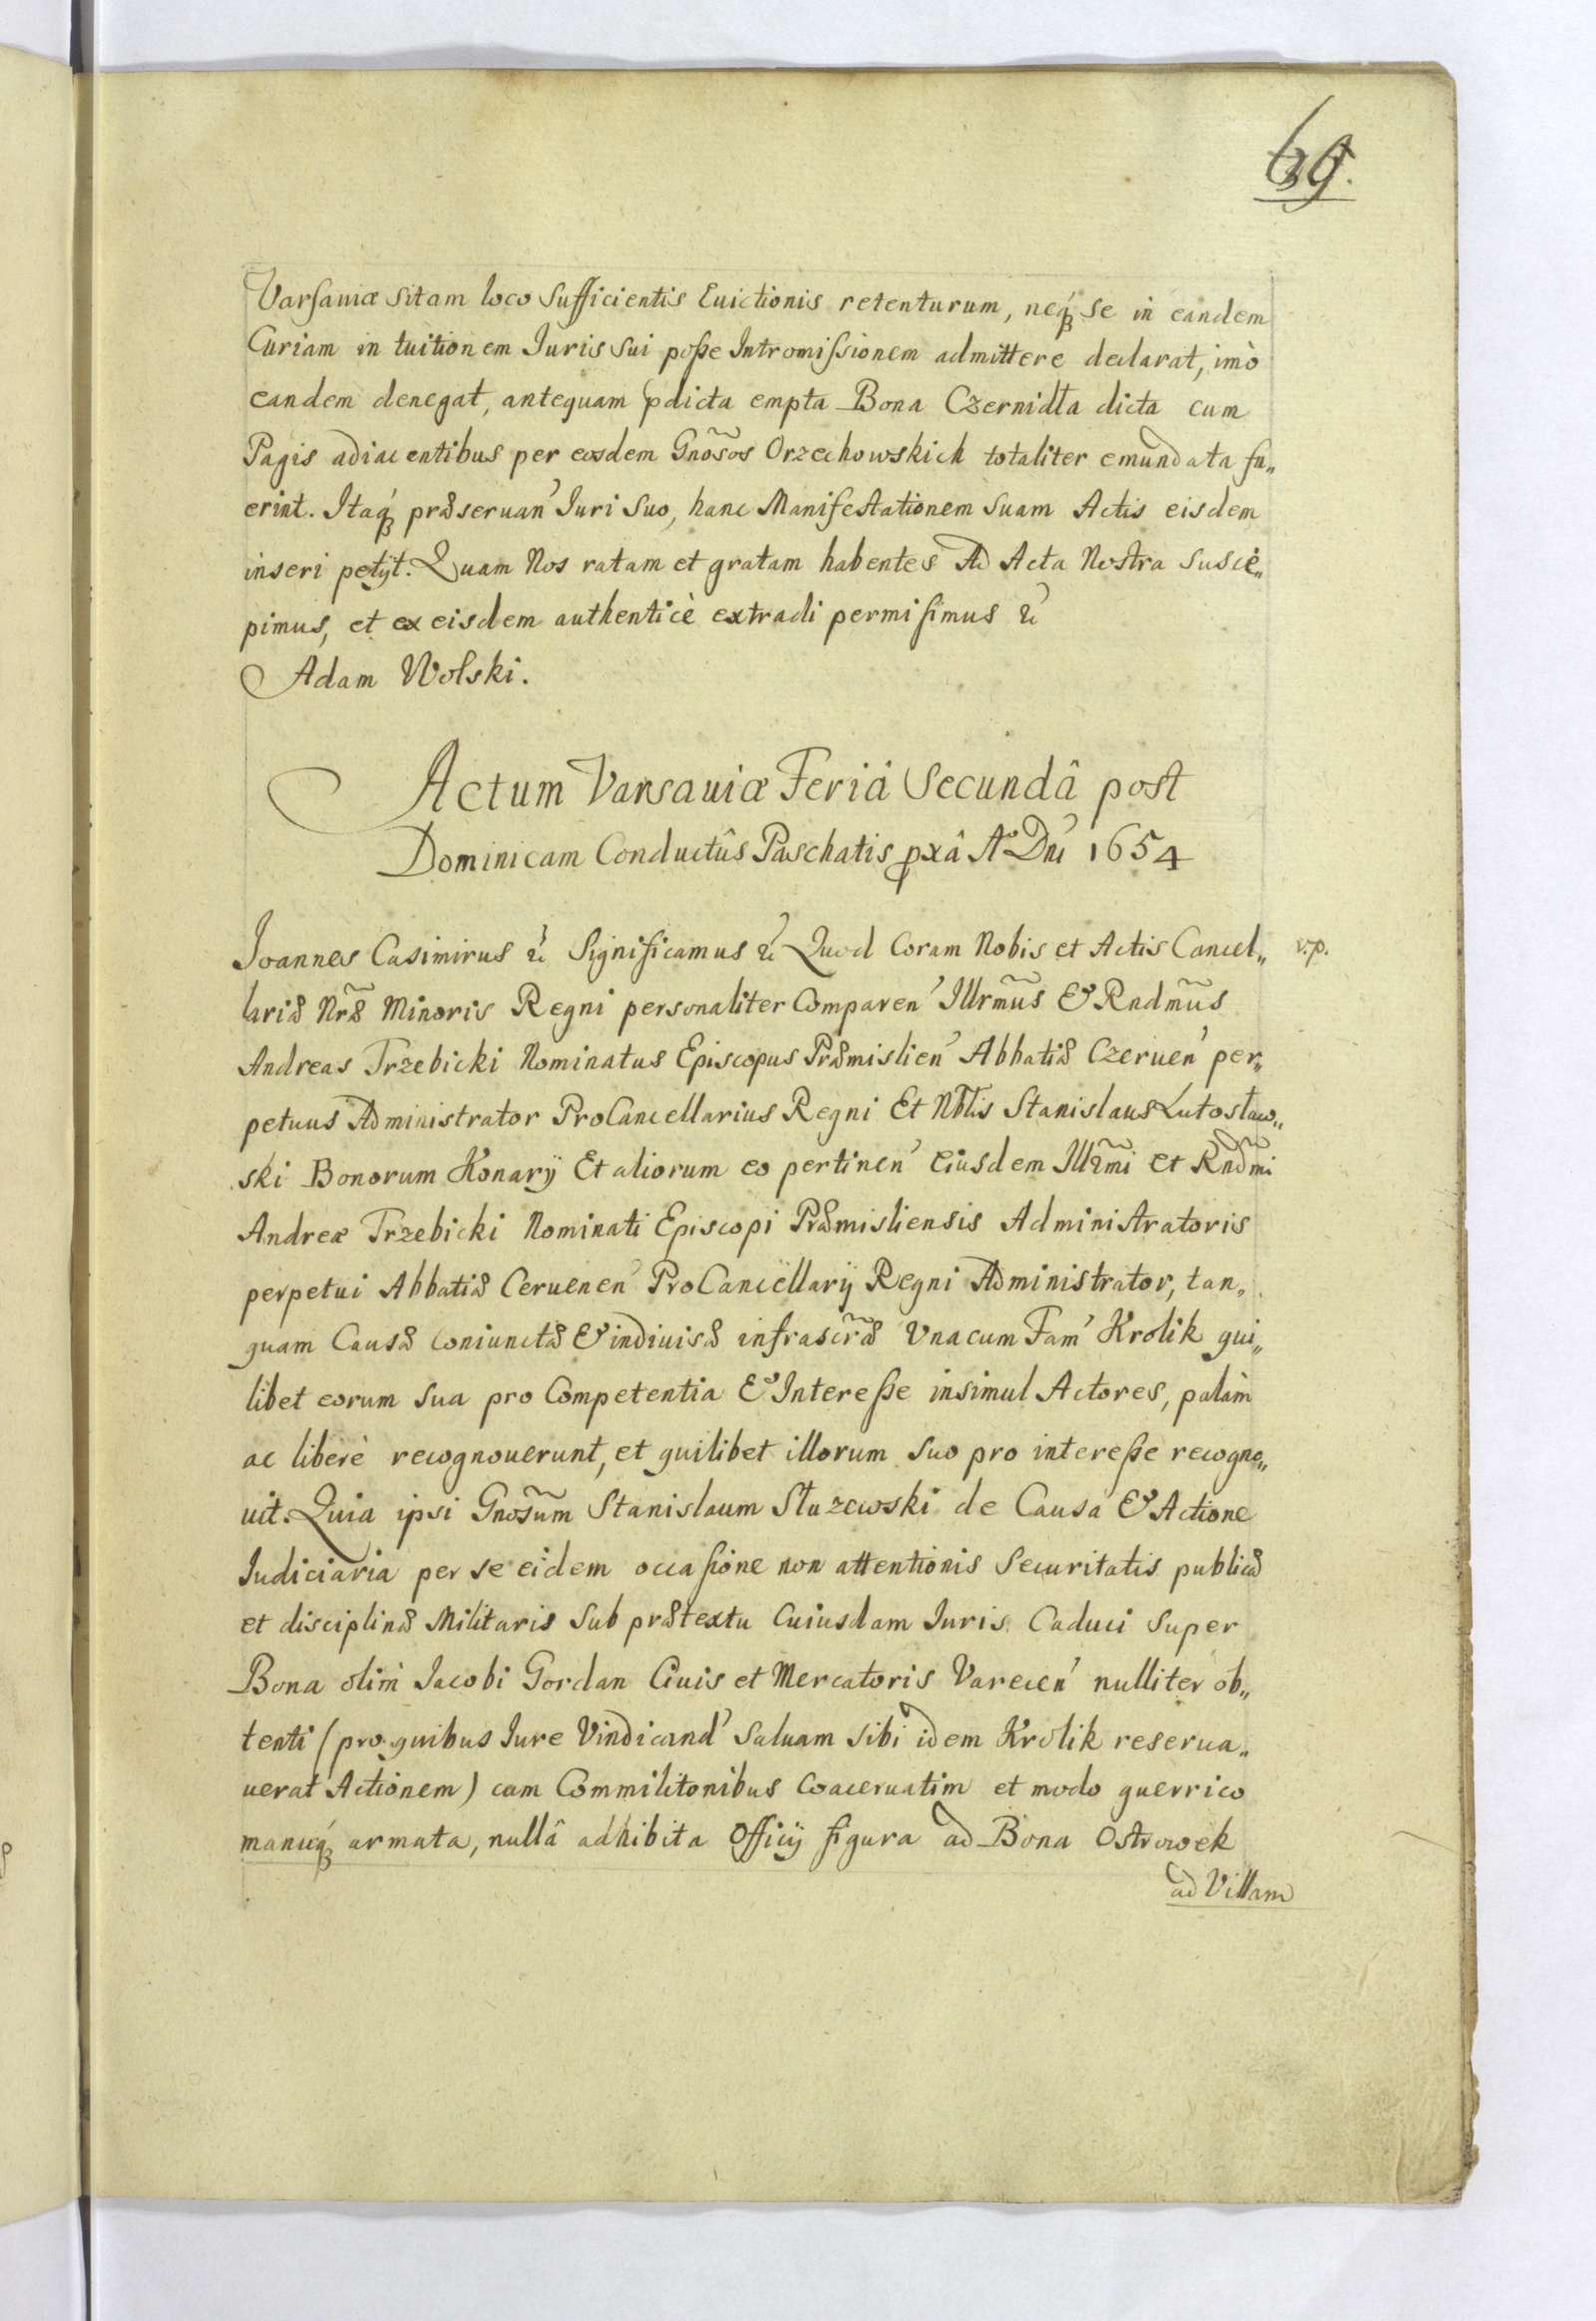 69.
Varsaviæ sitam loco sufficientis Euictionis retenturum, neq́ꝫ se in eandem
Curiam in tuitionem Iuris sui poße Intromißionem admittere declarat, imò
eandem denegat, antequam pdicta empta Bona Czernidła dicta cum
Pagis adiacentibus per eosdem Gnõsos Orzechowskich totaliter emundata fu„
erint. Itaq́ꝫ præseruan' Iuri suo, hanc Manifestationem suam Actis eisdem
inseri petÿt. Quam Nos ratam et gratam habentes Ad Acta Nostra susce„
pimus, et ex eisdem authenticè extradi permisimus &c
Adam Wolski.
Actum Varsauiæ Feriâ Secundâ post
Dominicam Conductûs Paschatis pxâ A° Dni 1654
Ioannes Casimirus &c Significamus &c Quod Coram Nobis et Actis Cancel„ v.p.
lariæ Nræ Minoris Regni personaliter Comparen' Illrm̃us & Rndm̃us
Andreas Trzebicki Nominatus Episcopus Præmislien' Abbatiæ Czeruen' per„
petuus Administrator ProCancellarius Regni Et Nblis Stanislaus Lutosław„
ski Bonorum Konarÿ Et aliorum eo pertinen' Eiusdem Illrm̃i et Rndm̃i
Andreæ Trzebicki Nominati Episcopi Præmisliensis Administratoris
perpetui Abbatiæ Ceruenen' ProCancellarÿ Regni Administrator, tan„
quam Causæ coniunctæ & indiuisæ infrascr̃æ Vnacum Fam' Krolik qui„
libet eorum sua pro Competentia & Intereße insimul Actores, palàm
ac liberè recognouerunt, et quilibet illorum suo pro intereße recogno„
uit. Quia ipsi Gnosũm Stanislaum Słuzewski de Causa & Actione
Iudiciaria per se eidem occasione non attentionis securitatis publicæ
et disciplinæ Militaris sub prætextu Cuiusdam Iuris Caduci super
Bona olim Iacobi Gordan Ciuis et Mercatoris Varecen' nulliter ob„
tenti (pro quibus Iure Vindicand' saluam sibi idem Krolik reserua„
uerat Actionem) cum Commilitonibus coaceruatim et modo guerrico
manuq́ꝫ armata, nullâ adhibita Officÿ figura ad Bona Ostrowek
ad Villam